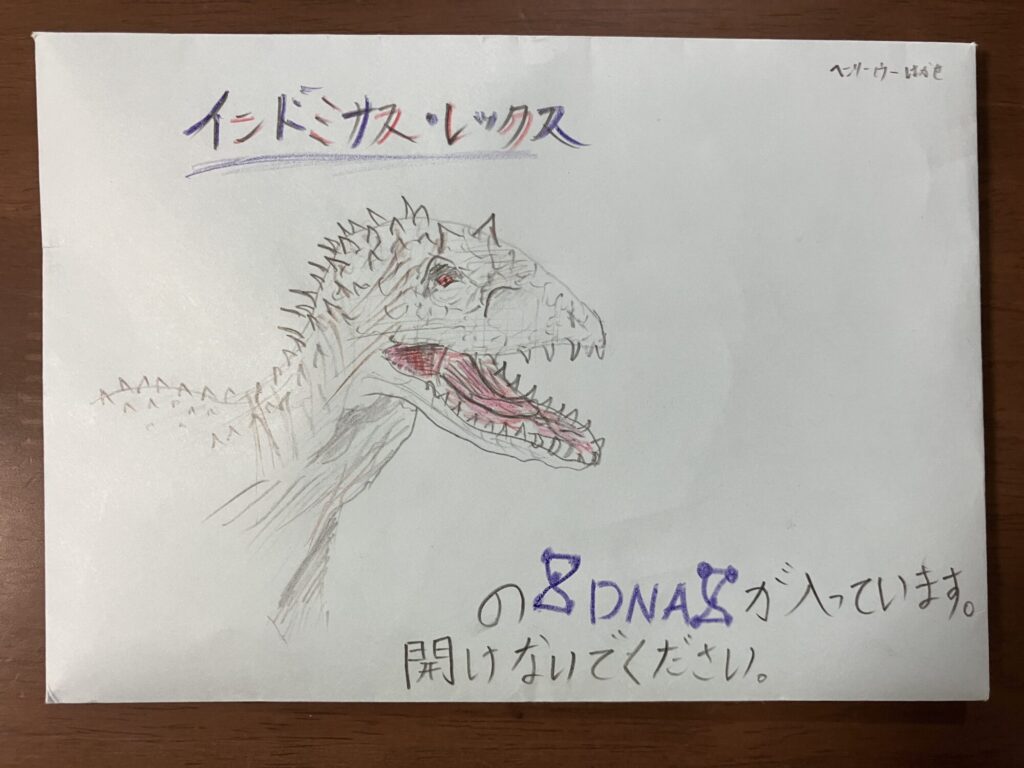 ヘンリーウーはかせ
インドミナス・レックス
のDNAが入っています。
開けないでください。